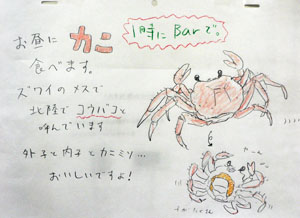 お昼に カニ
食べます。
1時に Barで。
ズワイのメスで
北陸でコウバコと
呼んでいます
外子と内子とカニミソ…
おいしいですよ！